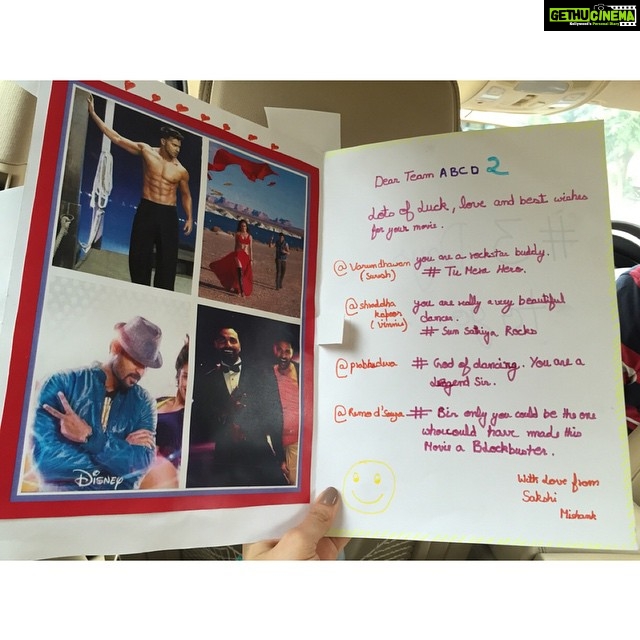 GETHUCINEMA
Kollywood's Personal Diary
Dear Team ABCD 2
Lots of Luck, love and best wishes
for your movie.
@Varundhawan you are a rockstar buddy.
(Suresh) # Tu Mera Hero.
@shraddha you are really a very beautiful
kapoor dancer.
(Vinnie) # Sun Sathiya Rocks
@prabhudeva # God of dancing. You are a
Legend Sir.
@Remo d'souza # Sir only you could be the one
who could have made this
Movie a Blockbuster.
With Love from
Sakshi
Disney